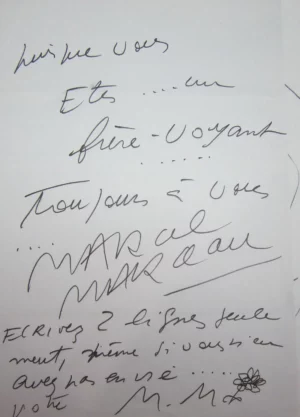 Puisque vous
Etes .... un
frère-voyant
......
Toujours à vous
.....
MARCEL
MARCEAU
ECRIVEZ 2 lignes seule
ment, même si vous n'en
avez pas envie .....
Votre M. M